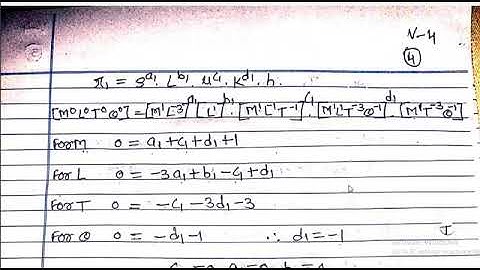 V-4
4
π₁ = ρ^a₁. L^b₁. μ^c₁. K^d₁. h.
[M⁰L⁰T⁰θ⁰] = [M¹L⁻³]^a₁. [L¹]^b₁. [M¹L⁻¹T⁻¹]^c₁. [M¹L¹T⁻³θ⁻¹]^d₁. [M¹T⁻³θ⁻¹]
For M 0 = a₁+c₁+d₁+1
For L 0 = -3a₁+b₁-c₁+d₁
For T 0 = -c₁-3d₁-3
For θ 0 = -d₁-1 ∴ d₁=-1